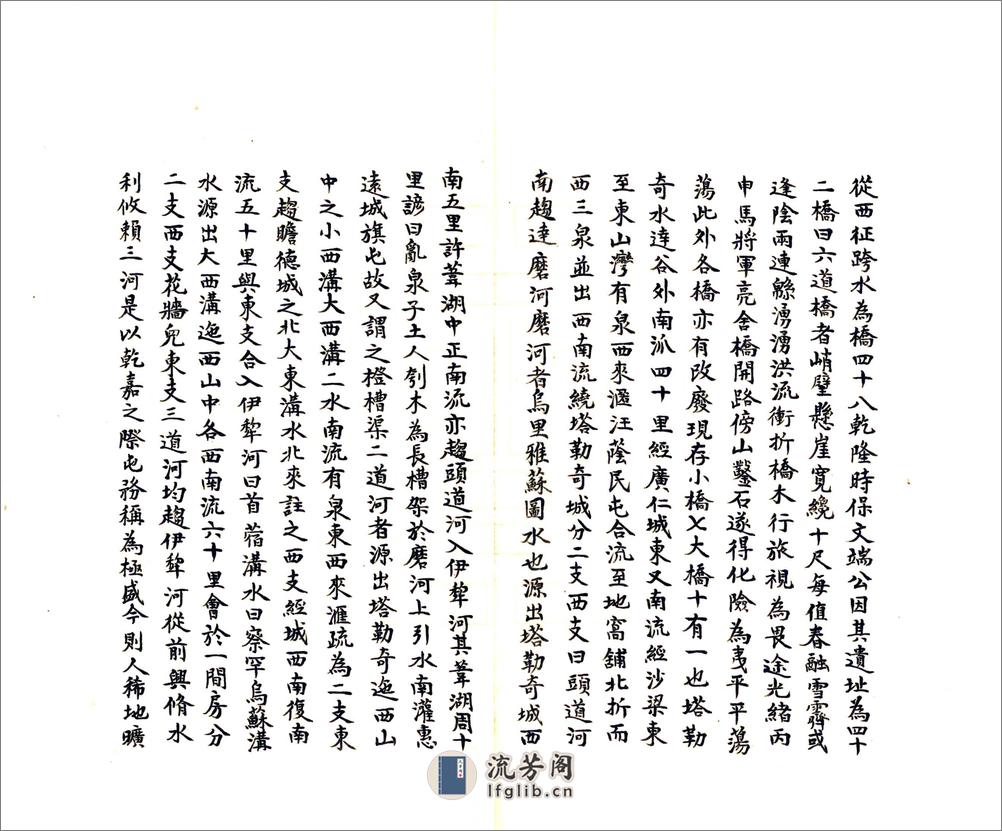 從西征跨水為橋四十八乾隆時保文端公因其遺址為四十
二橋曰六道橋者峭壁懸崖寬纔十尺每值春融雪霽或
逢陰雨連緜湧湧洪流衝折橋木行旅視為畏途光緒丙
申馬將軍亮舍橋開路傍山鑿石遂得化險為夷平平蕩
蕩此外各橋亦有改廢現存小橋七大橋十有一也塔勒
奇水達谷外南派四十里經廣仁城東又南流經沙梁東
至東山灣有泉西來滙汪蔭民屯合流至地窩鋪北折而
西三泉並出西南流繞塔勒奇城分二支西支曰頭道河
南趨達磨河磨河者烏里雅蘇圖水也源出塔勒奇城西
南五里許葦湖中正南流亦趨頭道河入伊犂河其葦湖周十
里諺曰亂泉子土人刳木為長槽架於磨河上引水南灌惠
遠城旗屯故又謂之橙槽渠二道河者源出塔勒奇迤西山
中之小西溝大西溝二水南流有泉東西來滙疏為二支東
支趨瞻德城之北大東溝水北來註之西支經城西南復南
流五十里與東支合入伊犂河曰首蓿溝水曰察罕烏蘇溝
水源出大西溝迤西山中各西南流六十里會於一間房分
二支西支花牆兒東支三道河均趨伊犂河從前興脩水
利攸賴三河是以乾嘉之際屯務稱為極盛今則人稀地曠
流芳阁
lfglib.cn